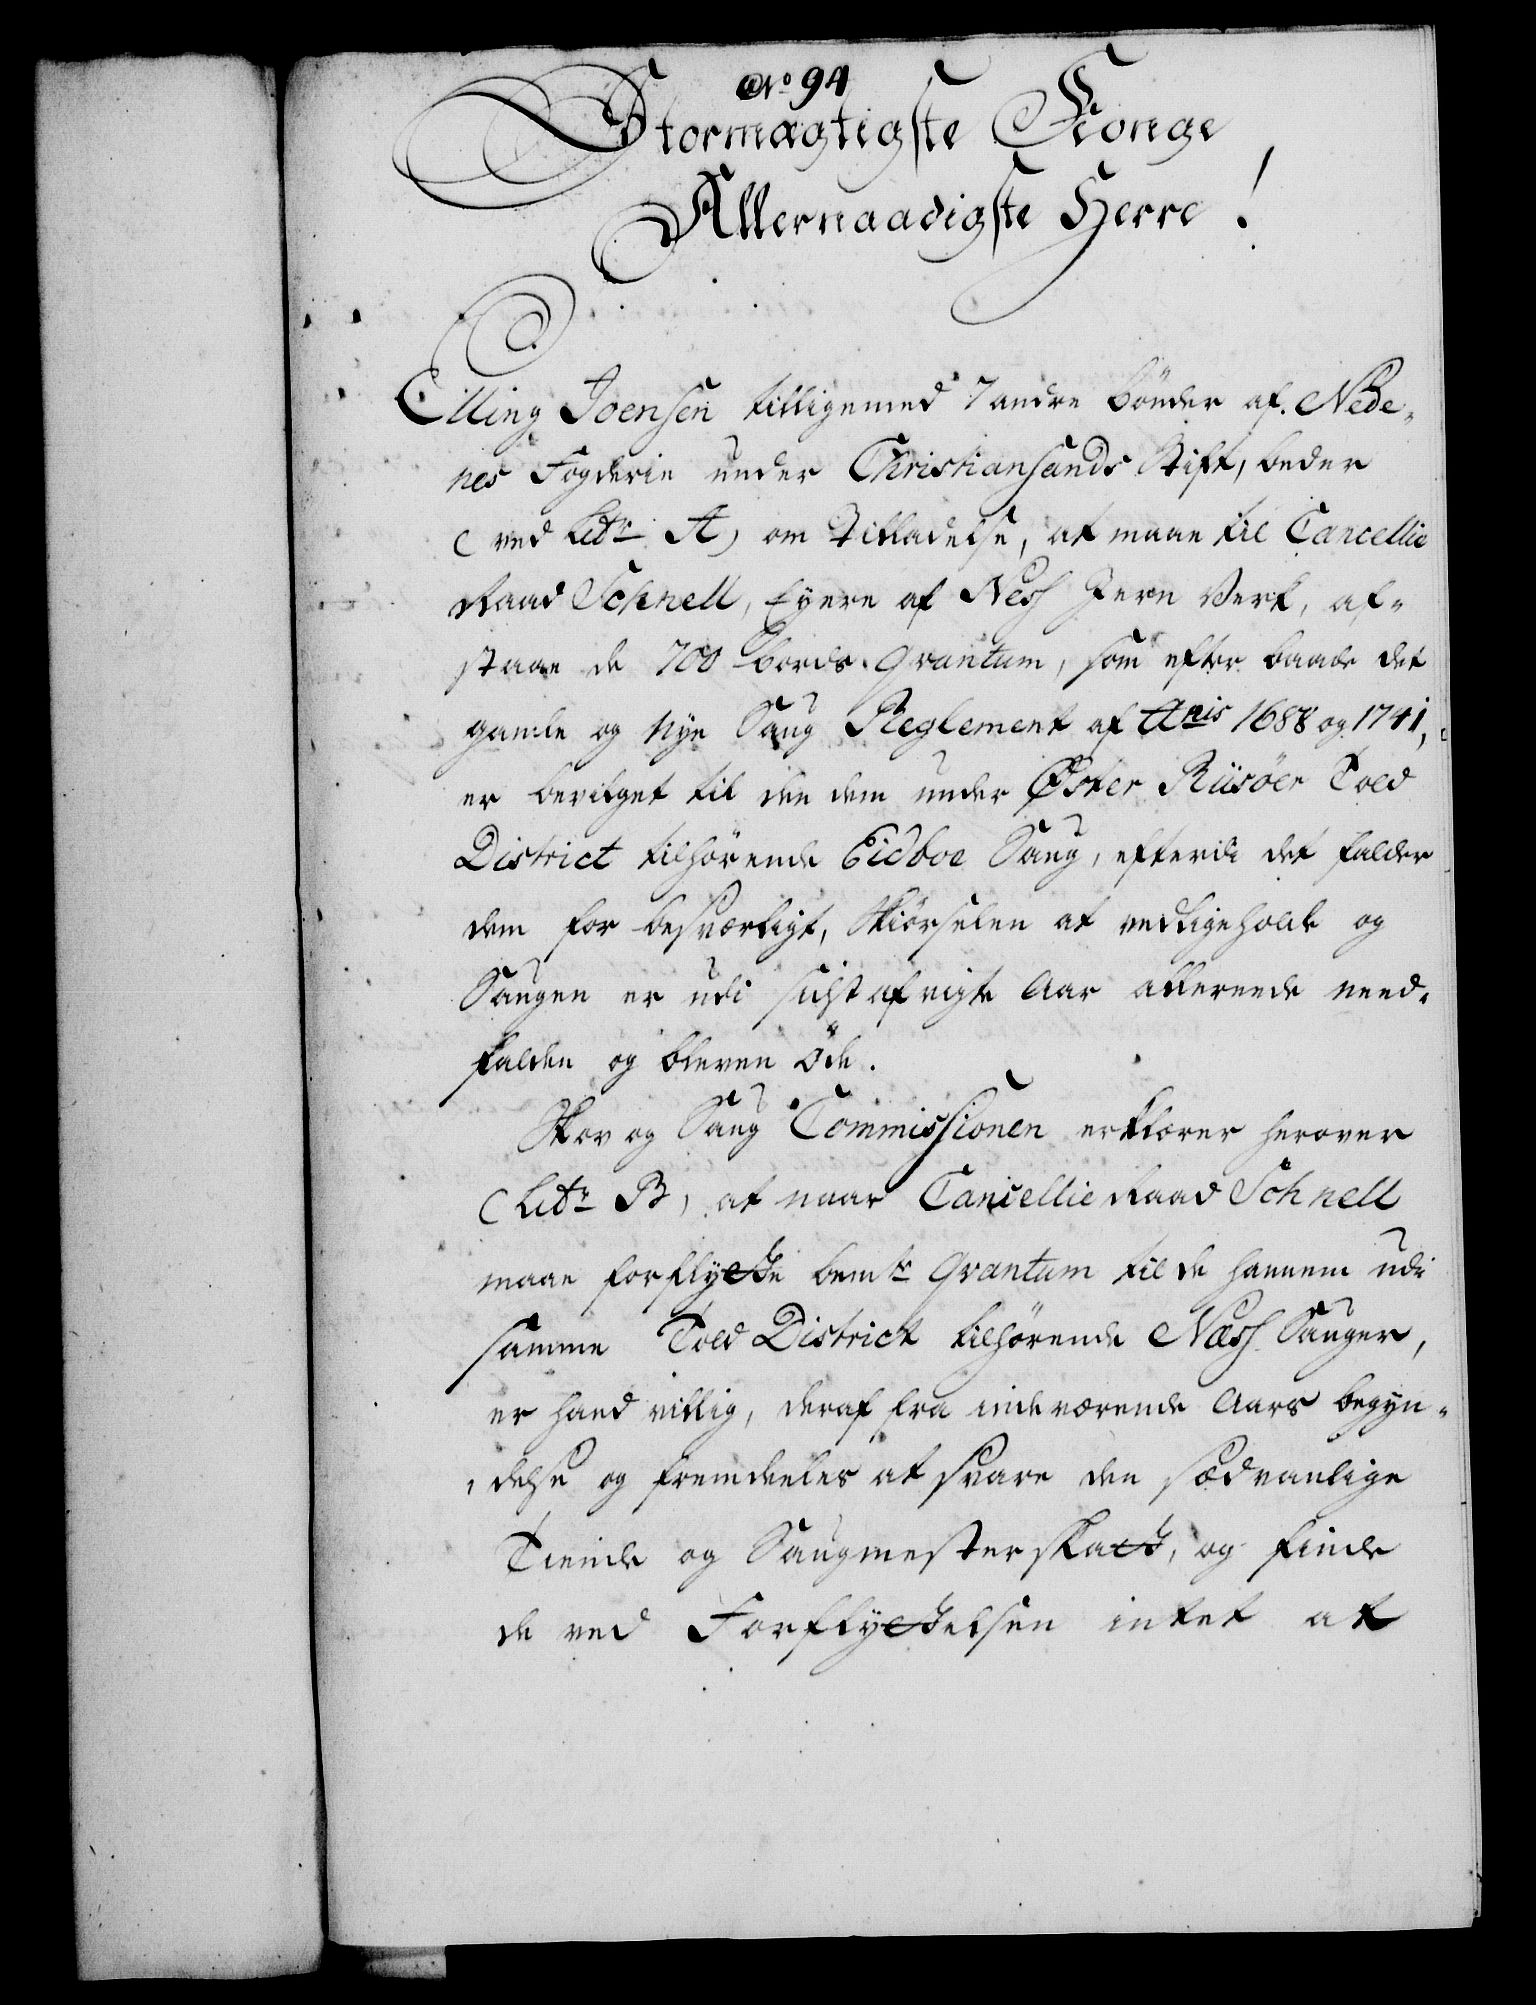 No 94
Stormægtigste Konge
Allernaadigste Herre!
Elling Joensen tilligemed 7 andre bönder af Nede-
nes Fogderie under Christiansands Stift, beder
(ved Litr A) om Tilladelse, at maae til Cancellie
Raad Schnell, Eyere af Nesh Jern Verk, af-
staae de 700 bords Qvantum, som efter baade det
gamle og nye Saug Reglement af Anis 1688 og 1741,
er bevilget til den dem under Øster Riisöer Told
District tilhörende Eidboe Saug, efterdi det falder
dem for besværligt, Kiörselen at vedligeholde og
Saugen er udi sidst afvigte Aar allereede need-
falden og bleven öde.
Skov og Saug Commissionen erklærer herover
(Litr B) at naar Cancellie Raad Schnell
maae forflytte bemte Qvantum til de hannem udi
samme Told District tilhörende Næsh Sauger,
er hand villig, deraf fra indeværende Aars begyn-
delse og fremdeeles at svare den sædvanlige
Tiende og Saugmesterskatt, og finde
de ved Forflyttelsen intet at